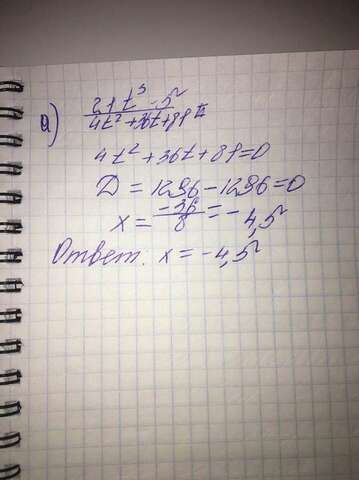 а) (21t³ - 5)/(4t² + 36t + 81)
4t² + 36t + 81 = 0
D = 1296 - 1296 = 0
x = -36/8 = -4,5
Ответ: x = -4,5